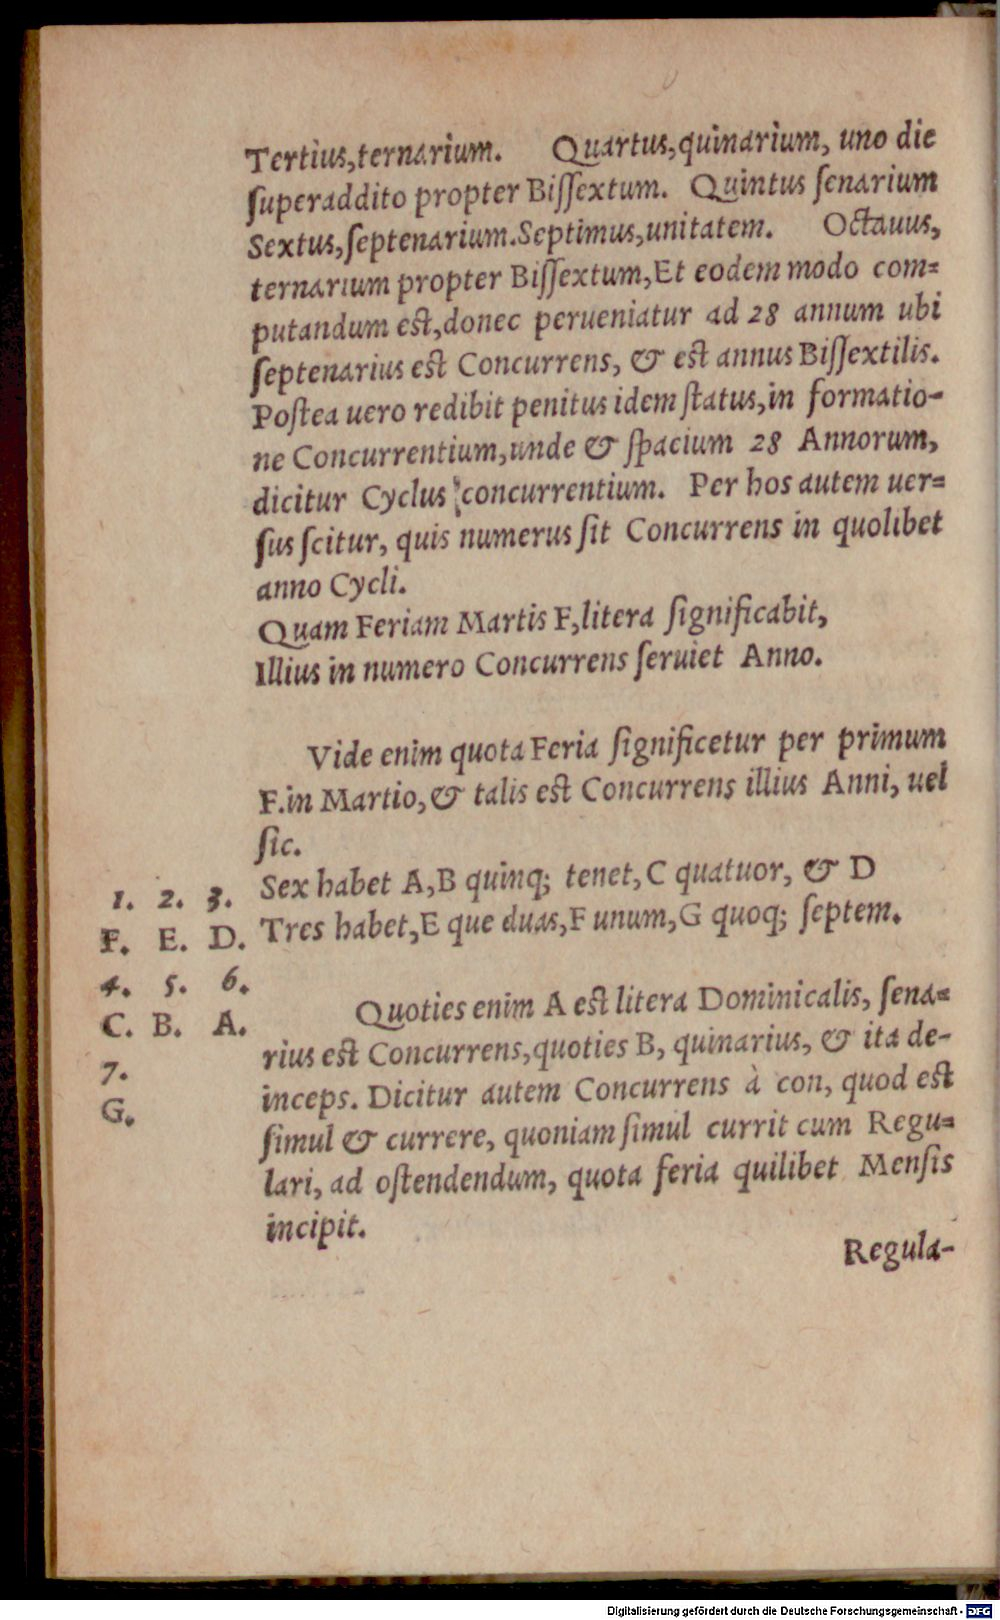 Tertius,ternarium. Quartus,quinarium, uno die
ſuperaddito propter Biſſextum. Quintus ſenarium
Sextus,ſeptenarium.Septimus,unitatem. Octauus,
ternarium propter Biſſextum,Et eodem modo com=
putandum est,donec perueniatur ad 28 annum ubi
ſeptenarius est Concurrens, & est annus Biſſextilis.
Poſtea uero redibit penitus idem ſtatus,in formatio-
ne Concurrentium,unde & ſpacium 28 Annorum,
dicitur Cyclus concurrentium. Per hos autem uer=
ſus ſcitur, quis numerus ſit Concurrens in quolibet
anno Cycli.
Quam Feriam Martis F,litera ſignificabit,
Illius in numero Concurrens ſeruiet Anno.
Vide enim quota Feria ſignificetur per primum
F.in Martio,& talis est Concurrens illius Anni, uel
ſic.
Sex habet A,B quinq; tenet, C quatuor, & D
Tres habet,E que duas,F unum,G quoq; ſeptem.
1. 2. 3.
F. E. D.
4. 5. 6.
C. B. A.
7.
G.
Quoties enim A est litera Dominicalis, ſena=
rius est Concurrens,quoties B, quinarius, & ita de-
inceps. Dicitur autem Concurrens à con, quod est
ſimul & currere, quoniam ſimul currit cum Regu=
lari, ad oſtendendum, quota feria quilibet Menſis
incipit.
Regula-
Digitalisierung gefördert durch die Deutsche Forschungsgemeinschaft - DFG